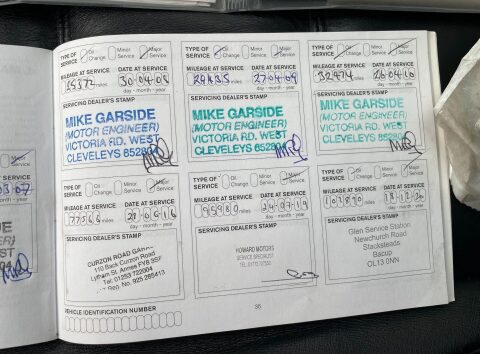 TYPE OF SERVICE Oil Change Minor Service Major Service
MILEAGE AT SERVICE DATE AT SERVICE
miles 30-04-08
day - month - year
SERVICING DEALER'S STAMP
MIKE GARSIDE
(MOTOR ENGINEER)
VICTORIA RD. WEST
CLEVELEYS
TYPE OF SERVICE Oil Change Minor Service Major Service
MILEAGE AT SERVICE DATE AT SERVICE
miles 27-04-09
day - month - year
SERVICING DEALER'S STAMP
MIKE GARSIDE
(MOTOR ENGINEER)
VICTORIA RD. WEST
CLEVELEYS
TYPE OF SERVICE Oil Change Minor Service Major Service
MILEAGE AT SERVICE DATE AT SERVICE
32474 miles 26-04-10
day - month - year
SERVICING DEALER'S STAMP
MIKE GARSIDE
(MOTOR ENGINEER)
VICTORIA RD. WEST
CLEVELEYS
TYPE OF SERVICE Oil Change Minor Service Major Service
MILEAGE AT SERVICE DATE AT SERVICE
77566 miles
day - month - year
SERVICING DEALER'S STAMP
CURZON ROAD
110 Back Curzon Road
Lytham St. Annes FY8
Tel: 01253 722004
Reg. No. 925 285413
TYPE OF SERVICE Oil Change Minor Service Major Service
MILEAGE AT SERVICE DATE AT SERVICE
95980 miles 24-07-19
day - month - year
SERVICING DEALER'S STAMP
HOWARD MOTORS
SERVICE SPECIALIST
TYPE OF SERVICE Oil Change Minor Service Major Service
MILEAGE AT SERVICE DATE AT SERVICE
103870 miles 18-12-20
day - month - year
SERVICING DEALER'S STAMP
Glen Service Station
Newchurch Road
Stacksteads
Bacup
OL13 0NN
VEHICLE IDENTIFICATION NUMBER
36